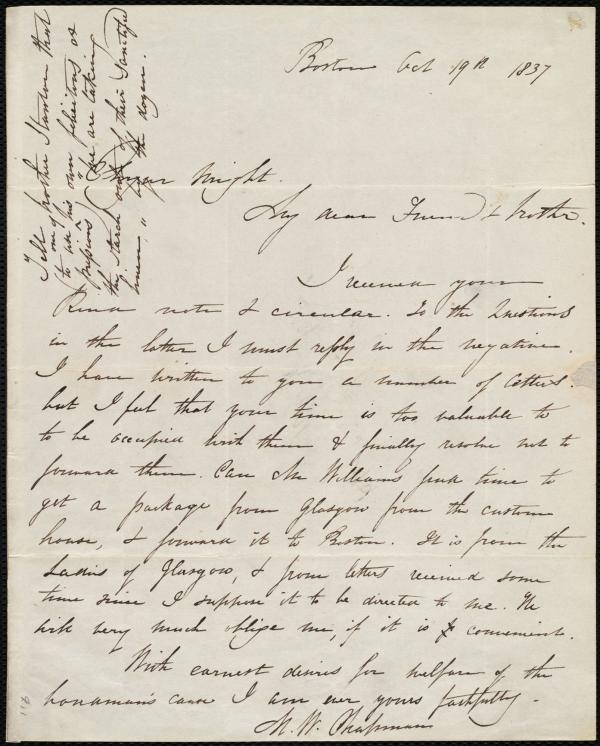 Boston Oct 19th 1837
Elizur Wright.
My dear Friend & brother.
I received your
kind note & circular. To the Questions
in the latter I must reply in the negative.
I have written to you a number of letters.
but I feel that your time is too valuable to
to be occupied with them & finally resolve not to
forward them. Can Mr Williams find time to
get a package from Glasgow from the custom
house, & forward it to Boston. It is from the
Ladies of Glasgow, & from letters received some
time since I suppose it to be directed to me. He
will very much oblige me, if it is convenient.
With earnest desires for welfare of the
bondman's cause I am ever yours faithfully.
M. W. Chapman
Tell brother Stanton that
to use one of his own felicitous ex
pressions "We are taking
the starch out of their Sanctified
linen" by the dozen.